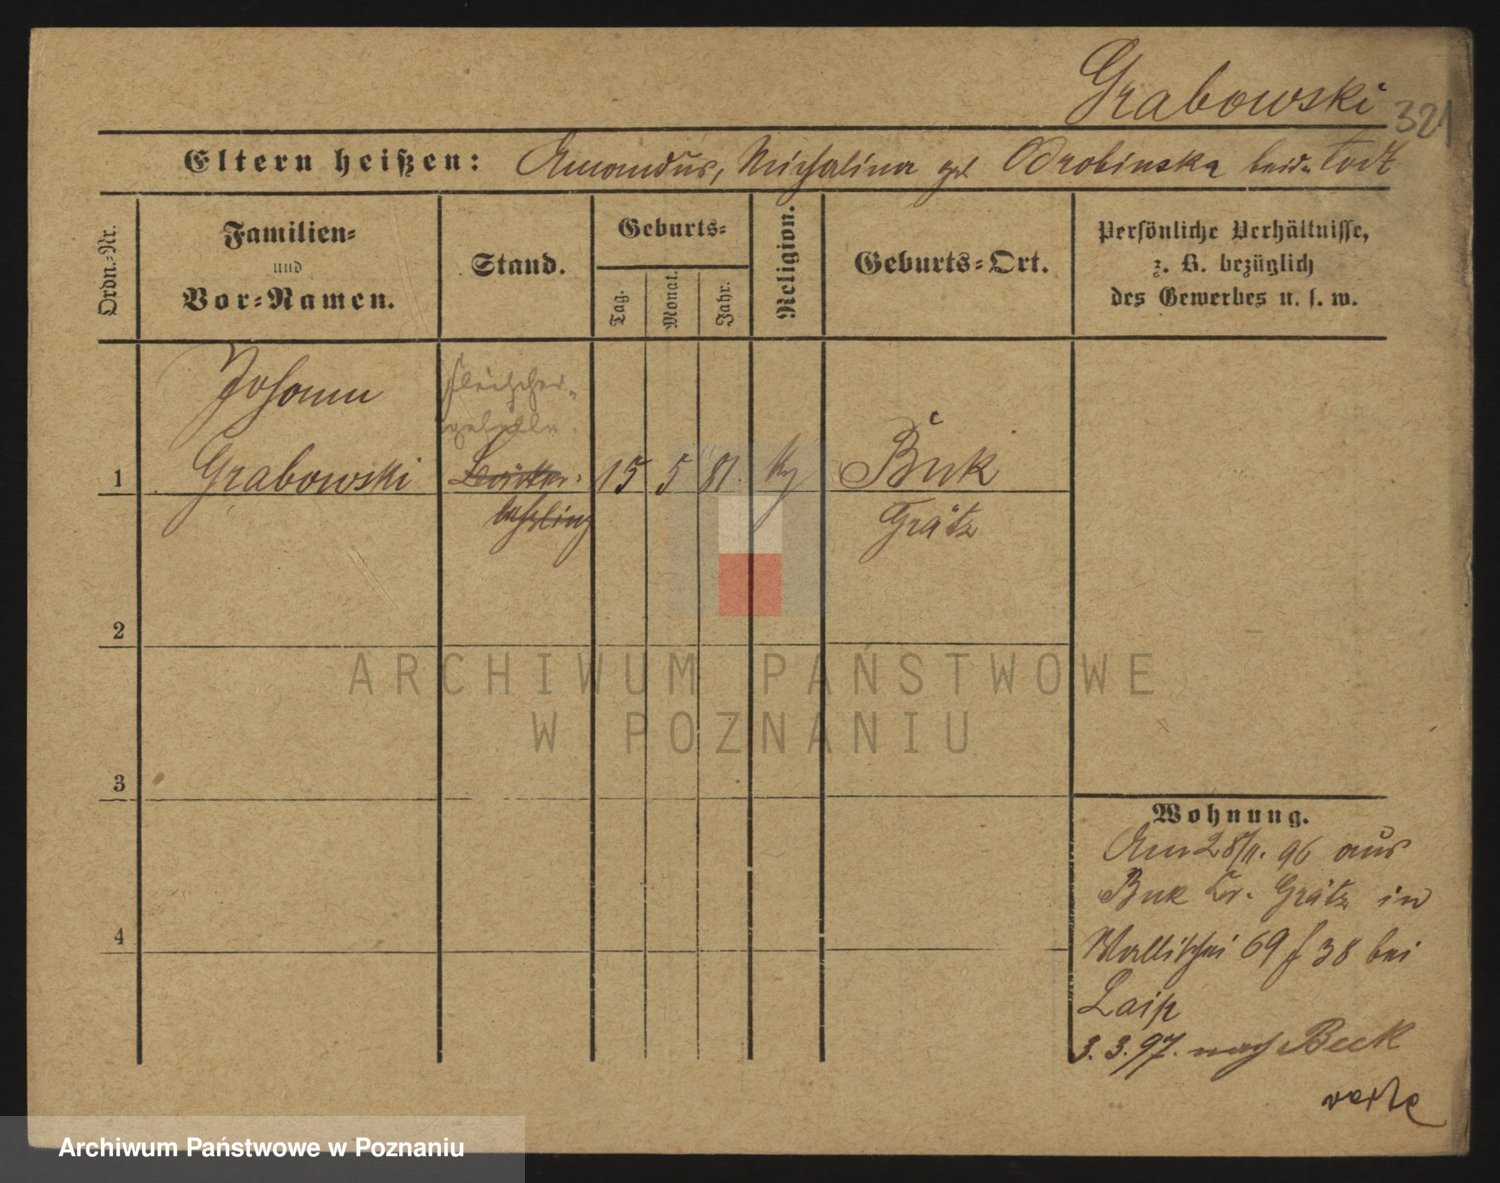 Grabowski 321
Eltern heißen: Amandus, Michalina geb Drobinska beide todt
Ordn.-Nr.
Familien-
und
Vor-Namen.
Stand.
Geburts-
Tag.
Monat.
Jahr.
Religion.
Geburts-Ort.
Persönliche Verhältnisse,
z. B. bezüglich
des Gewerbes u. s. w.
Johann
Fleischer-
geselle.
1 Grabowski 15 5 81. Buk
lehrling Grätz
2
3
4
Wohnung.
Am 28/11. 96 aus
Buk Kr. Grätz in
Wallischei 69 f 38 bei
3. 3. 97. nach
verte
ARCHIWUM PAŃSTWOWE
W POZNANIU
Archiwum Państwowe w Poznaniu